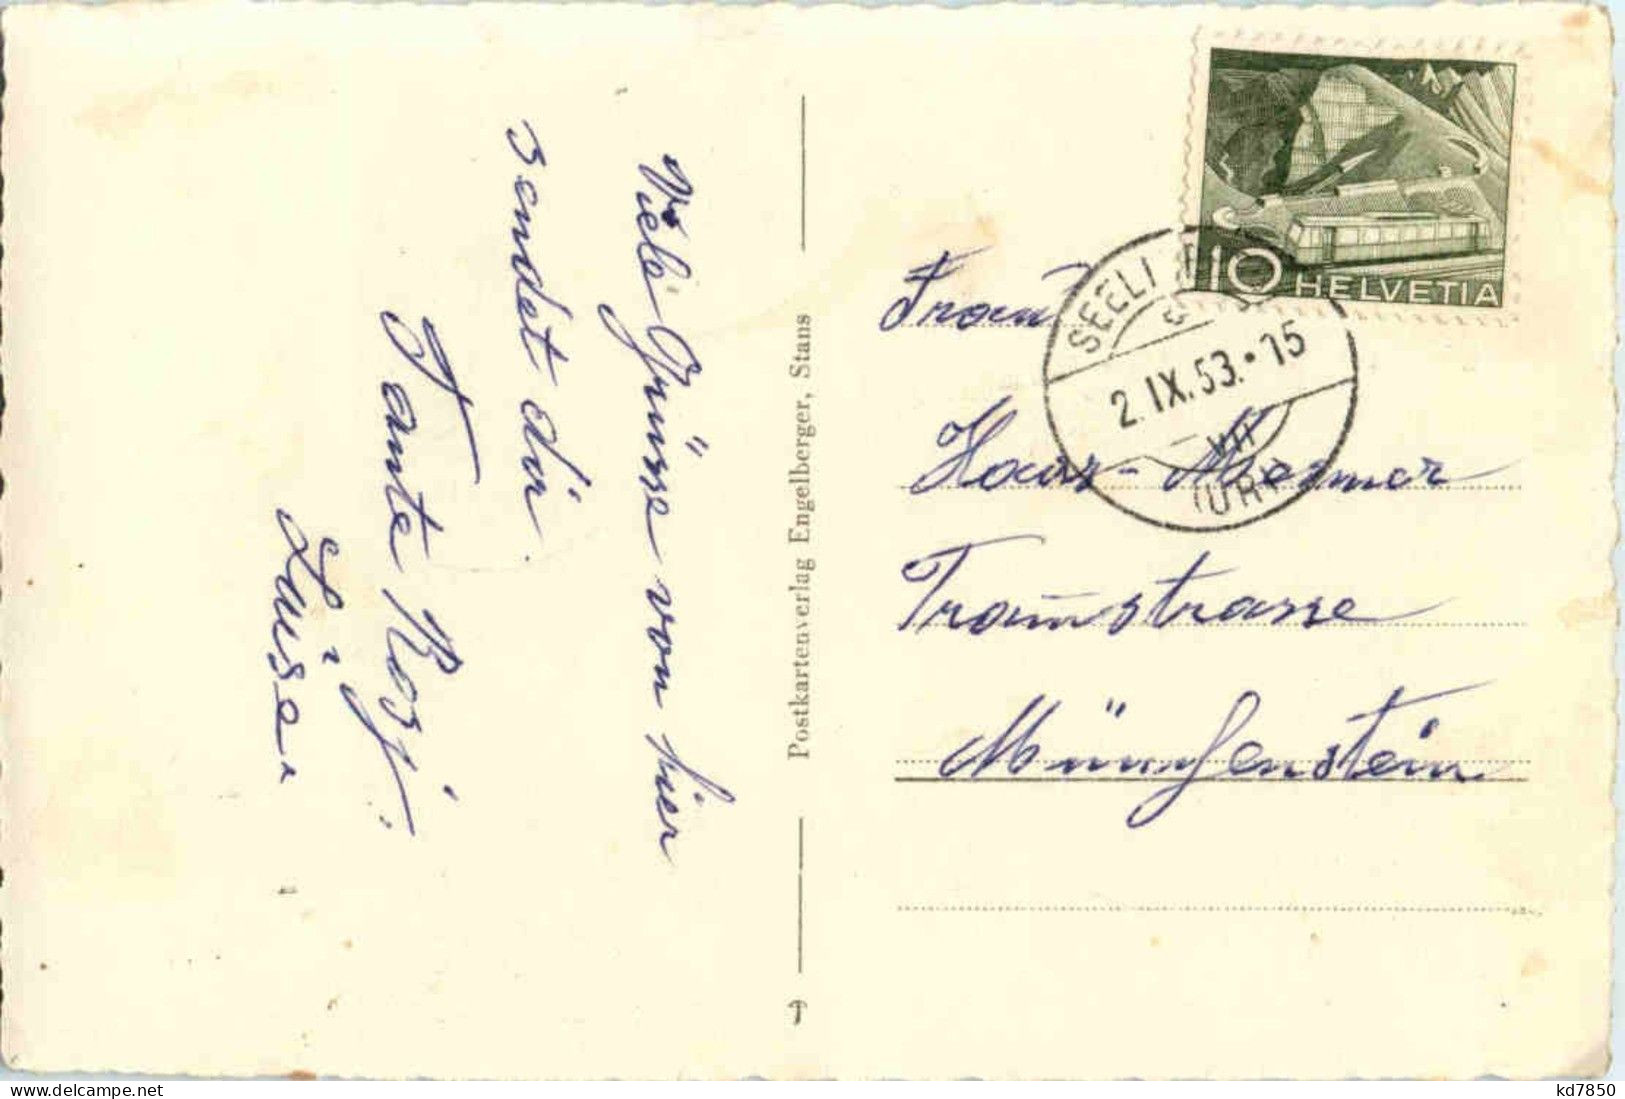 Viele Grüsse von hier
sendet dir
Tante Rosj.
Luise.
Postkartenverlag Engelberger, Stans
10 HELVETIA
SEELI
2. IX. 53. • 15
VII
(URI)
Frau
Haas-Mesmer
Tramstrasse
Münchenstein
www.delcampe.net
kd7850